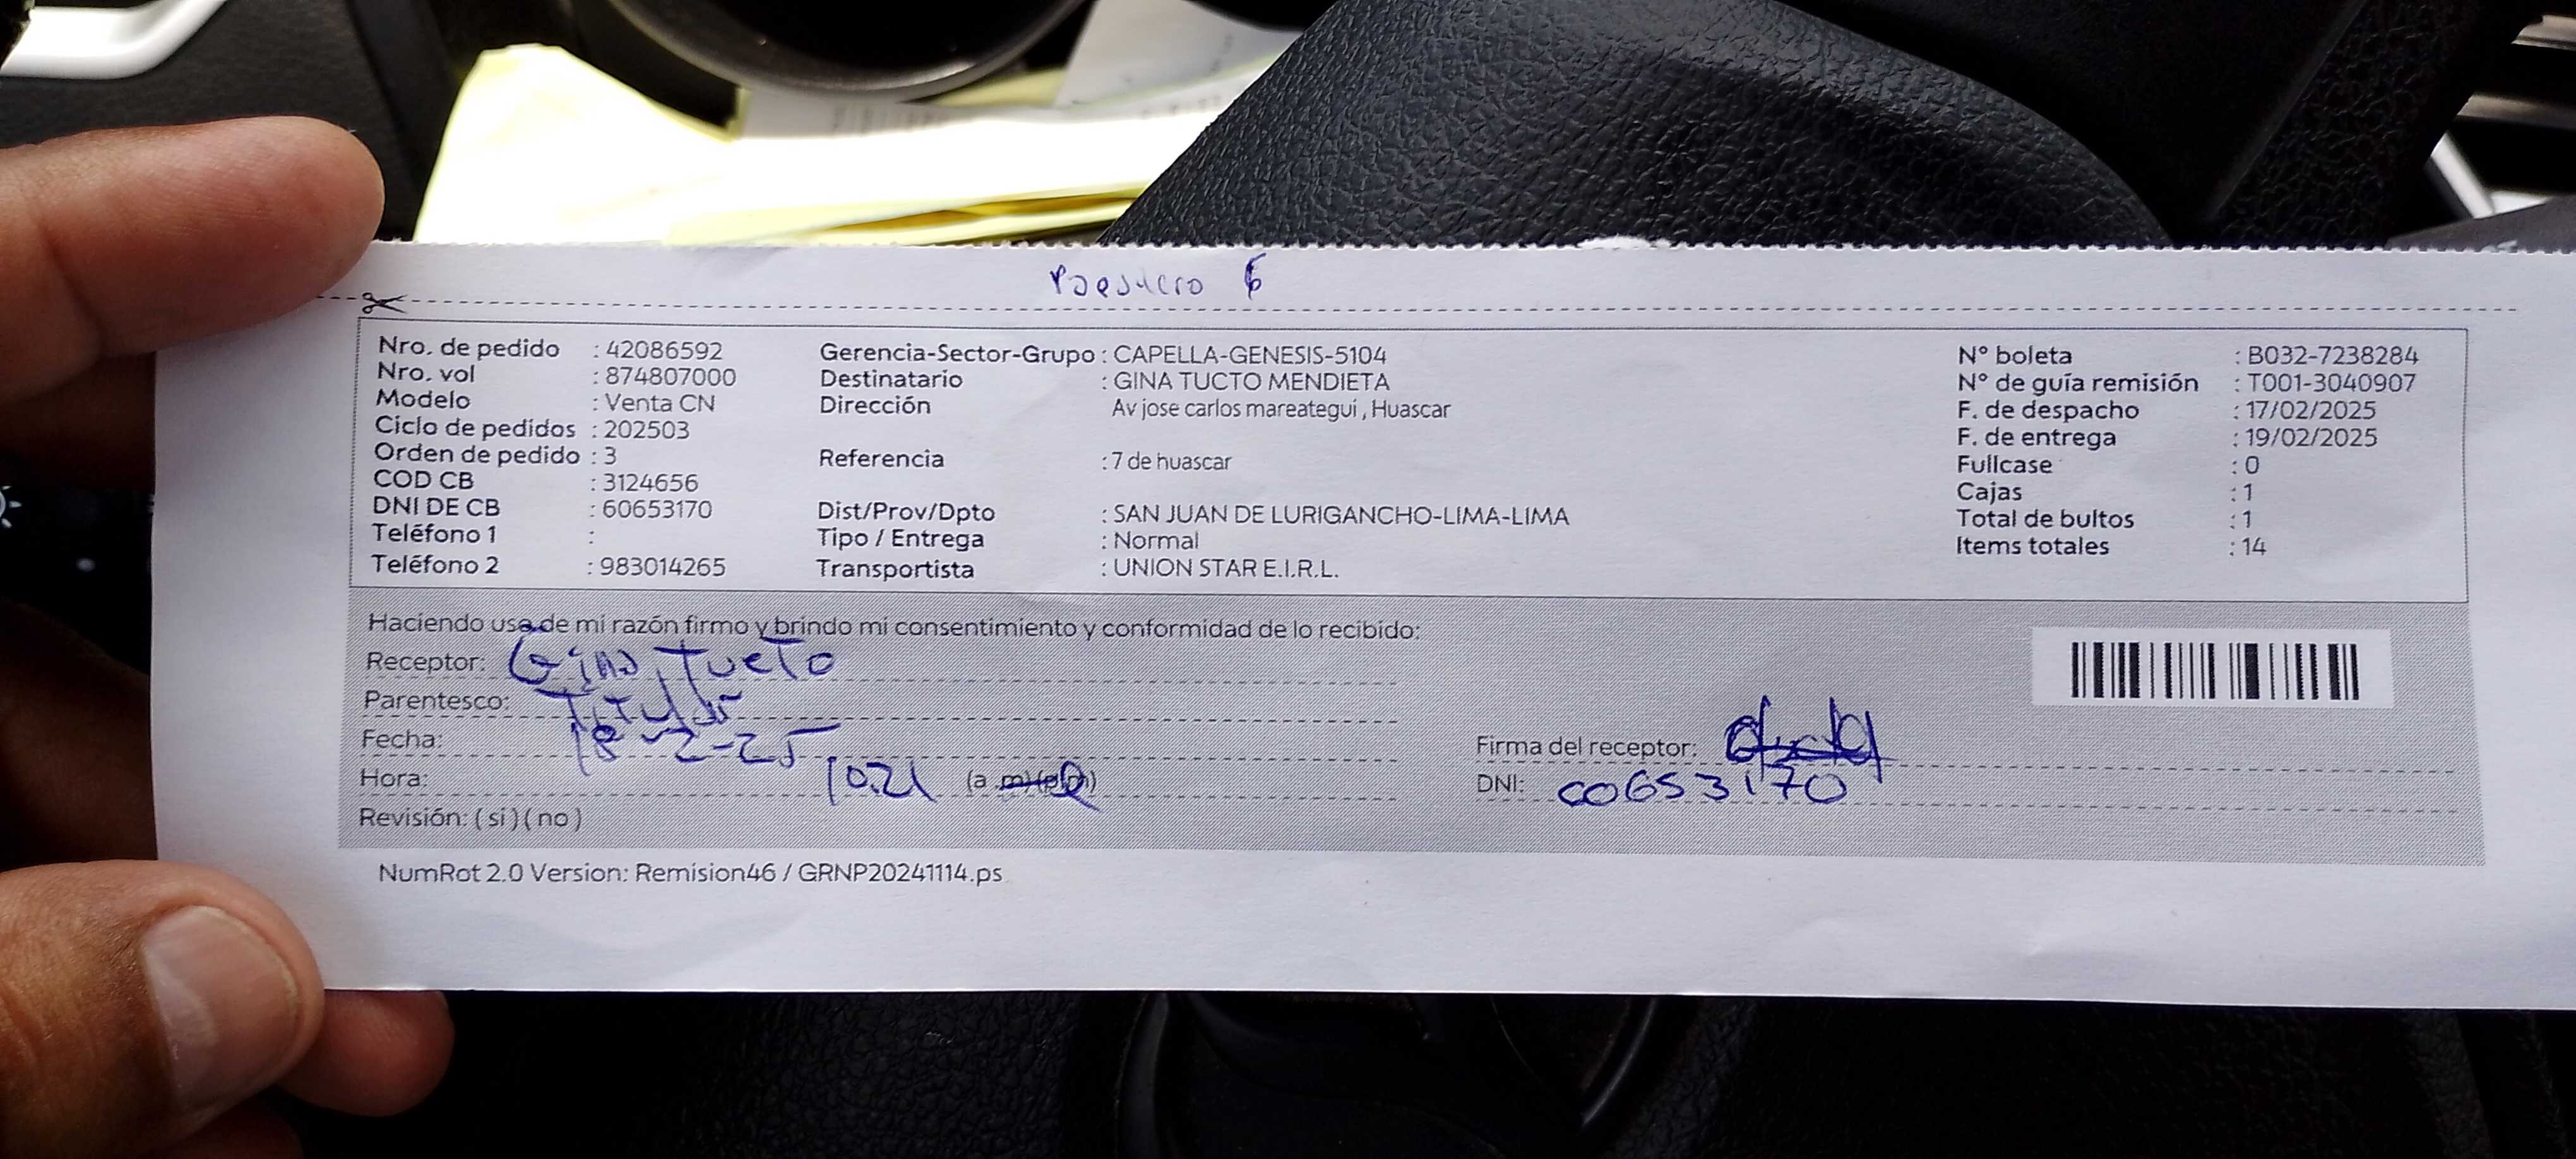 Paradero 6
Nro. de pedido : 42086592 Gerencia-Sector-Grupo : CAPELLA-GENESIS-5104 N° boleta : B032-7238284
Nro. vol : 874807000 Destinatario : GINA TUCTO MENDIETA N° de guía remisión : T001-3040907
Modelo : Venta CN Dirección Av jose carlos mareategui , Huascar F. de despacho : 17/02/2025
Ciclo de pedidos : 202503 F. de entrega : 19/02/2025
Orden de pedido : 3 Referencia : 7 de huascar Fullcase : 0
COD CB : 3124656 Cajas : 1
DNI DE CB : 60653170 Dist/Prov/Dpto : SAN JUAN DE LURIGANCHO-LIMA-LIMA Total de bultos : 1
Teléfono 1 : Tipo / Entrega : Normal Items totales : 14
Teléfono 2 : 983014265 Transportista : UNION STAR E.I.R.L.
Haciendo uso de mi razón firmo y brindo mi consentimiento y conformidad de lo recibido:
Receptor: Gina Tucto
Parentesco: Titular
Fecha: 18-2-25 Firma del receptor:
Hora: 10.21 (a .m) (p.m) DNI: 60653170
Revisión: ( si ) ( no )
NumRot 2.0 Version: Remision46 / GRNP20241114.ps